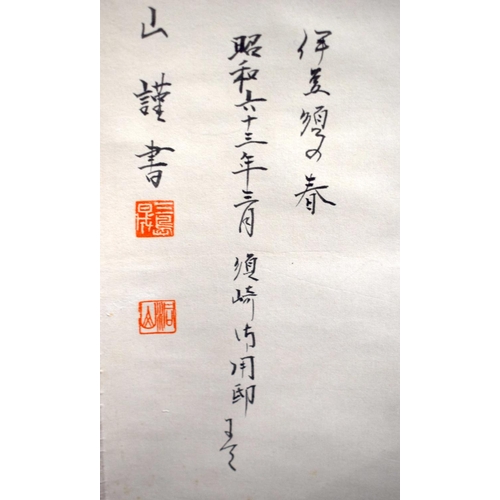 伊豆須の春
昭和六十三年三月 須崎御用邸
山 謹書